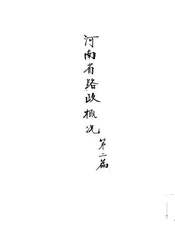 河南省路政概况
第二篇